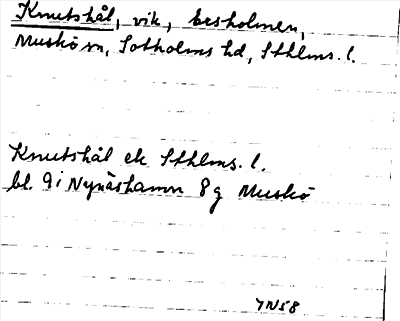 Knutshål, vik, besholmen,
Muskö sn, Sotholms hd, Sthlms. l.
Knutshål ek Sthlms. l.
bl. 9 i Nynäshamn 8g Muskö
7N58